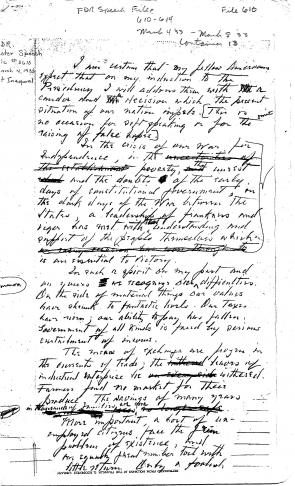 FDR Speech File
610-614
File 610
March 4 '33 - March 8 33
Container 13
I am certain that my fellow Americans
expect that on my induction to the
Presidency I will address them with a
candor and decision which the present
situation of our nation
This is
no occasion for soft or for the
raising of false hopes
In the crisis of our War for
Independence, in the
poverty, the unrest
and the doubts of the early
days of constitutional government in
the dark days of the War between the
States, a leadership of frankness and
vigor has met with understanding and
support of the people themselves which
is an essential to victory.
In such a spirit on my part and
on yours we recognize our difficulties.
On the side of material things our values
have shrunk to fantastic levels. Our taxes
have risen; our ability to pay has fallen.
Government of all kinds is faced by serious
curtailment of income.
The means of exchange are frozen in
the currents of trade; the leaves of
industrial enterprise lie withered.
Farmers find no market for their
produce. The savings of many years
in thousands of families are gone
More important a host of un-
employed citizens face the grim
problem of existence, and
an equally great number toil with
little return. Only a foolish